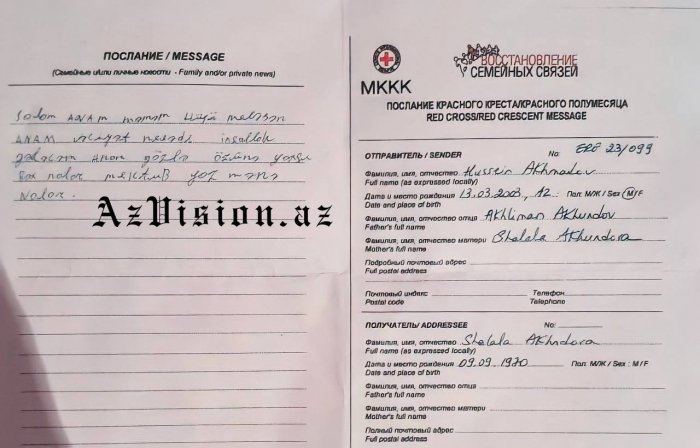 ПОСЛАНИЕ / MESSAGE
(Семейные и/или личные новости - Family and/or private news)
Salam ANAM
ANAM
gələcəm Anam gözlə özünə yaxşı
bax nolar məktub yaz mənə
Nolar.
AzVision.az
МККК
ВОССТАНОВЛЕНИЕ
СЕМЕЙНЫХ СВЯЗЕЙ
ПОСЛАНИЕ КРАСНОГО КРЕСТА/КРАСНОГО ПОЛУМЕСЯЦА
RED CROSS/RED CRESCENT MESSAGE
ОТПРАВИТЕЛЬ / SENDER No: ERE 23/099
Фамилия, имя, отчество Hussein Akhmadov
Full name (as expressed locally)
Дата и место рождения 13.03.2003, A2. Пол: М/Ж / Sex : M/F
Date and place of birth
Фамилия, имя, отчество отца Akhliman Akhundov
Father's full name
Фамилия, имя, отчество матери Shalala Akhundova
Mother's full name
Подробный почтовый адрес
Full postal address
Почтовый индекс Телефон
Postal code Telephone
ПОЛУЧАТЕЛЬ/ ADDRESSEE No:
Фамилия, имя, отчество Shalala Akhndova
Full name (as expressed locally)
Дата и место рождения 09.09.1970 Пол: М/Ж / Sex : M/F
Date and place of birth
Фамилия, имя, отчество отца
Father's full name
Фамилия, имя, отчество матери
Mother's full name
Полный почтовый адрес
Full postal address